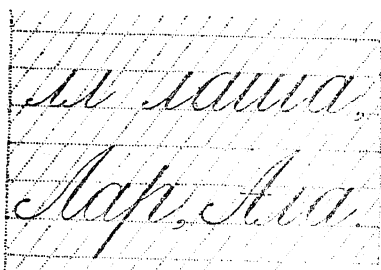 лл лаша,
Лар, Ала.